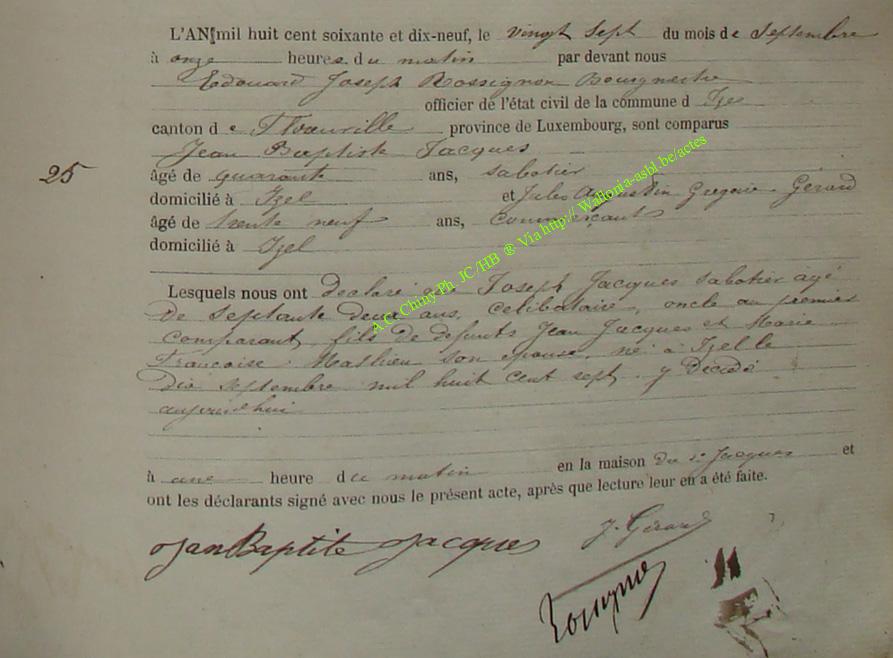 L'AN mil huit cent soixante et dix-neuf, le vingt sept du mois de Septembre
à onze heures du matin par devant nous
Edouard Joseph Rossignon Bourgmestre
officier de l'état civil de la commune d'Izel
canton de Florenville province de Luxembourg, sont comparus
Jean Baptiste Jacques
25
âgé de quarante ans, sabotier
domicilié à Izel et Jules Augustin Grégoire Gérard
âgé de trente neuf ans, commerçant
domicilié à Izel
Lesquels nous ont déclaré que Joseph Jacques sabotier âgé
de septante deux ans, célibataire, oncle au premier
comparant, fils de defunts Jean Jacques et Marie
Françoise Mathieu son épouse, né à Izel le
dix septembre mil huit cent sept y décédé
aujourd'hui
à une heure du matin en la maison du dt Jacques et
ont les déclarants signé avec nous le présent acte, après que lecture leur en a été faite.
Jean Baptite Jacques J. Gérard
Rossignon
A.C. Chiny Ph. JC/HB ® Via http://Wallonia-asbl.be/actes